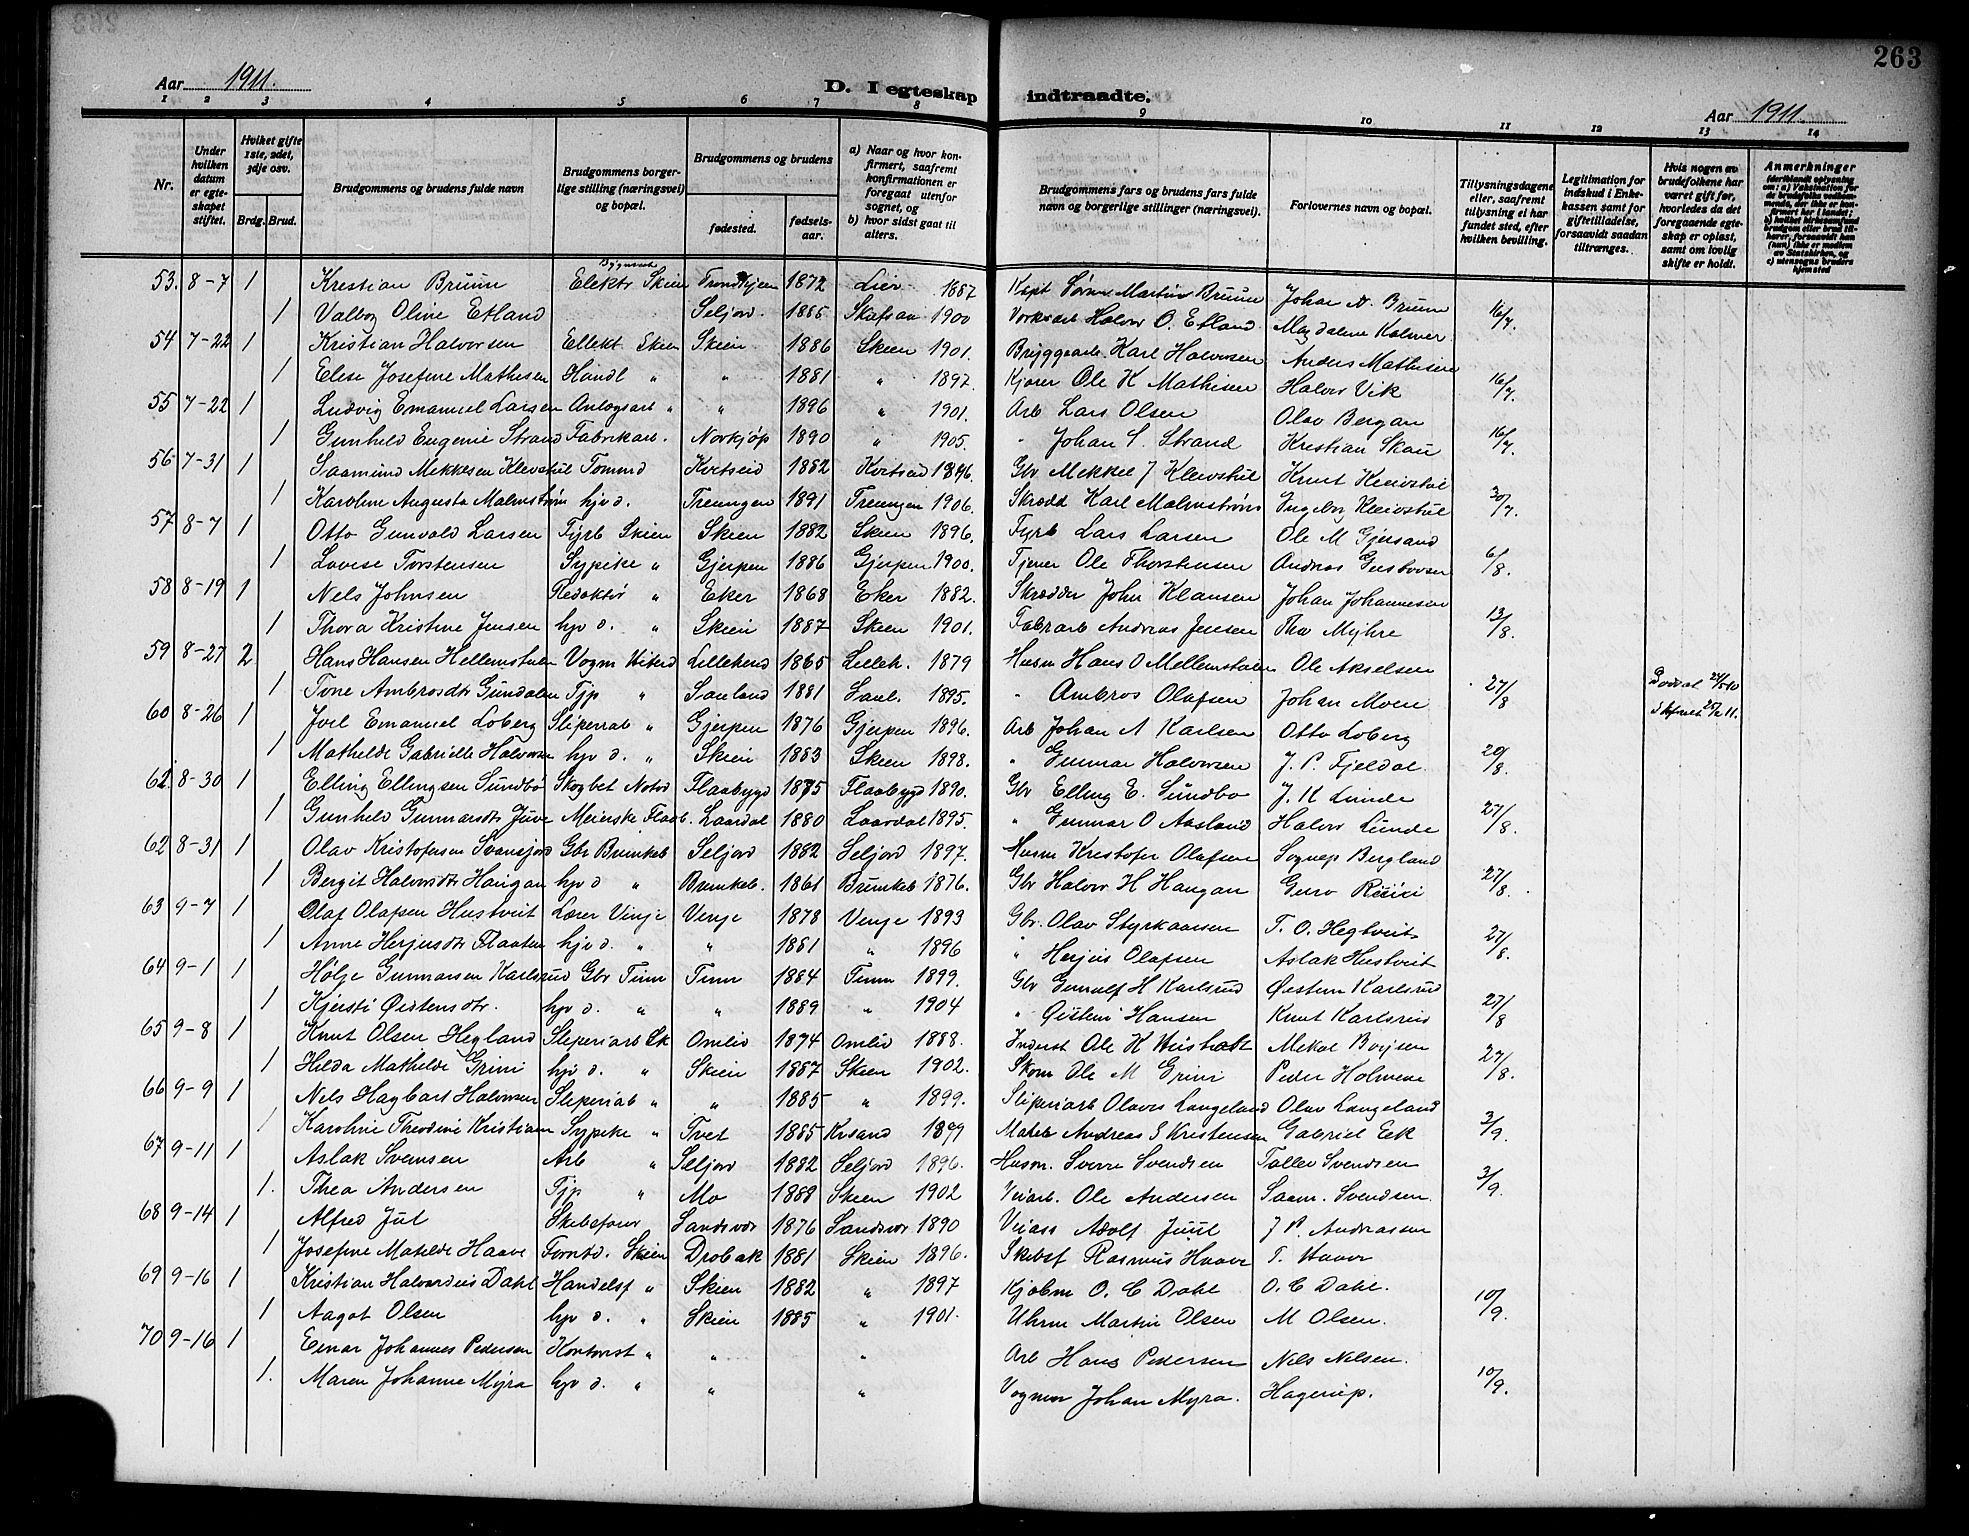 263
Aar 1911. D. I egteskap indtraadte. Aar 1911.
1 2 3 4 5 6 7 8 9 10 11 12 13 14
Nr.
Under hvilken datum er egteskapet stiftet.
Hvilket gifte 1ste, 2det, 3dje osv.
Brdg. Brud.
Brudgommens og brudens fulde navn
Brudgommens borgerlige stilling (næringsvei) og bopæl.
Brudgommens og brudens
fødested. fødselsaar.
a) Naar og hvor konfirmert, saafremt konfirmationen er foregaat utenfor sognet, og
b) hvor sidst gaat til alters.
Brudgommens fars og brudens fars fulde navn og borgerlige stillinger (næringsvei).
Forlovernes navn og bopæl.
Tillysningsdagene eller, saafremt tillysning ei har fundet sted, efter hvilken bevilling.
Legitimation for indskud i Enkekassen samt for giftetilladelse, forsaavidt saadan tiltrænges.
Hvis nogen av brudefolkene har været gift før, hvorledes da det foregaaende egteskap er opløst, samt om lovlig skifte er holdt.
Anmerkninger
53. 8-7 1 Kristian Bruun Elektr Skien Trondhjem 1872 Lier 1887 Kapt Søren Martin Bruun Johan N. Bruun
1 Valbog Olive Etland Seljord. 1885 Skafsaa 1900 Halvor O. Etland Magdalene Kolmer 16/7.
54 7-22 1 Kristian Halvorsen Ellekt. Skien Skien 1886 Skien 1901. Bryggearb. Karl Halvorsen Anders Mathisen
1 Elise Josefine Mathesen Handl " " 1881 " 1897. Kjører Ole K Mathisen Halvor Vik 16/7.
55 7-22 1 Ludvig Emanuel Larsen Anlegsarb " " 1896 " 1901. Arb Lars Olsen Olav Bergan
1 Gunhild Eugenie Strand Fabrikarb. Norkjøp 1890 " 1905. " Johan S. Strand Kristian Skau 16/7.
56 7-31 1 Saamund Mekkelsen Kleivstul Tømmd Kvitseid 1882 Kvitseid 1896. Gbr Mekkel J Kleivstul Knut Kleivstul
1 Karoline Augusta Malmstrøm hjv d. Treungen 1891 Treungen 1906. Skrædd Karl Malmstrøm Ingeborg Kleivstul 30/7.
57 8-7 1 Otto Gunvald Larsen Fyrb Skien Skien 1882 Skien 1896. Fyrb Lars Larsen Ole M Gjersand
1 Lovise Torstensen Sypike " Gjerpen 1886 Gjerpen 1900. Tjener Ole Thorstensen Andreas Gustavsen 6/8.
58 8-19 1 Nels Johnsen Redaktør " Eker 1868 Eker 1882. Skrædder John Klausen Johan Johannesen
1 Thora Kristine Jensen hjv d. " Skien 1887 Skien 1901. Fabrarb Andreas Jensen Tho Myhre 13/8.
59 8-27 2 Hans Hansen Mellemstuen Vogm Hitterd Lillehmd 1865 Lilleh. 1879 Husm Hans O Mellemstuen Ole Akselsen
1 Tone Ambrosdtr Gundalen Tjp " Sauland 1881 Saul. 1895. " Ambros Olafsen Johan Moen 27/8
60 8-26 1 Jvel Emanuel Loberg Sliperiab " Gjerpen 1876 Gjerpen 1896. Arb Johan A Karlsen Otto Loberg
1 Mathilde Gabrielle Halvorsen hjv d. " Skien 1883 Skien 1898. " Gunnar Halvorsen J. P. Fjeldal 20/8.
62 8-30 1 Elling Ellingsen Sundbø Skogbet Notod Flaabygd 1875 Flaabygd 1890. Gbr Elling E. Sundbø J. K Lunde
1 Gunhild Gunnarsdtr Juve Meierske Flaab. Laardal 1880 Laardal 1895. " Gunnar O Aasland Halvor Lunde 27/8.
62 8-31 1 Olav Kristofersen Svanejord Gbr Brunkeb Seljord 1882 Seljord 1897. Husm Kristofer Olafsen Sognep Bergland
1 Bergit Halvorsdtr Haugan hjv d " Brunkeb. 1861 Brunkeb 1876. Gbr Halvor H Haugan Guro 27/8.
63 9-7 1 Olaf Olafsen Hustveit Lærer Vinje Vinje 1878 Vinje 1893 Gbr. Olav Styrkaarsen T. O. Hegtveit
1 Anne Herjusdtr Flaaten hjv d. " " 1881 " 1896 " Herjus Olafsen Aslak Hustveit 27/8.
64 9-1 1 Hølje Gunnarsen Karlsrud Gbr Tinn Tinn 1884 Tinn 1899. Gbr Gunulf H Karlsrud Østein Karlsrud
1 Kjersti Øistensdtr. hjv d. " " 1889 " 1904 " Østein Hansen Knut Karlsrud 27/8
65 9-8 1 Knut Olsen Hegland Sliperiarb Sk Omlid 1874 Omlid 1888. Inderst Ole K Mekal Borjsen
1 Hilda Mathilde Grini hjv d. " Skien 1887 Skien 1902. Skom Ole M Grini Peder Holmene 27/8.
66 9-9 1 Nils Hagbart Halvorsen Sliperiab " " 1885 " 1899. Sliperiarb Olaves Langeland Olav Langeland
1 Karoline Theodine Kristiansen Sypike " Tvet 1885 Krsand 1899 Matr Andreas S Kristensen Gabriel Eek 3/9.
67 9-11 1 Aslak Svensen Arb " Seljord 1882 Seljord 1896. Husm. Sverre Svendsen Tallev Svendsen
1. Thea Andersen Tjp " Mo 1888 Skien 1902 Veiarb. Ole Andersen Saam. Svendsen 3/9.
68 9-14 1 Alfred Jul Skibsfører Sandsvær 1876 Sandsvær 1890 Veiass Adolf Juul J P. Andreassen
1 Josefine Matilde Haave Skien Drøbak 1881 Skien 1896. Skibsf Rasmus Haave T. Haave
69 9-16 1 Kristian Halvardius Dahl Handelsf " Skien 1882 " 1897 Kjøbm O. C Dahl O. C Dahl.
1 Aagot Olsen hjv d. " Skien 1885 " 1901. Uhrm Martin Olsen M Olsen. 10/9.
70 9-16 1 Einar Johannes Pedersen Kontorist " " " Arb Hans Pedersen Nils Nilsen.
1. Maren Johanne Myra hjv d. " " " Vognm Johan Myra. Hagerup. 10/9.